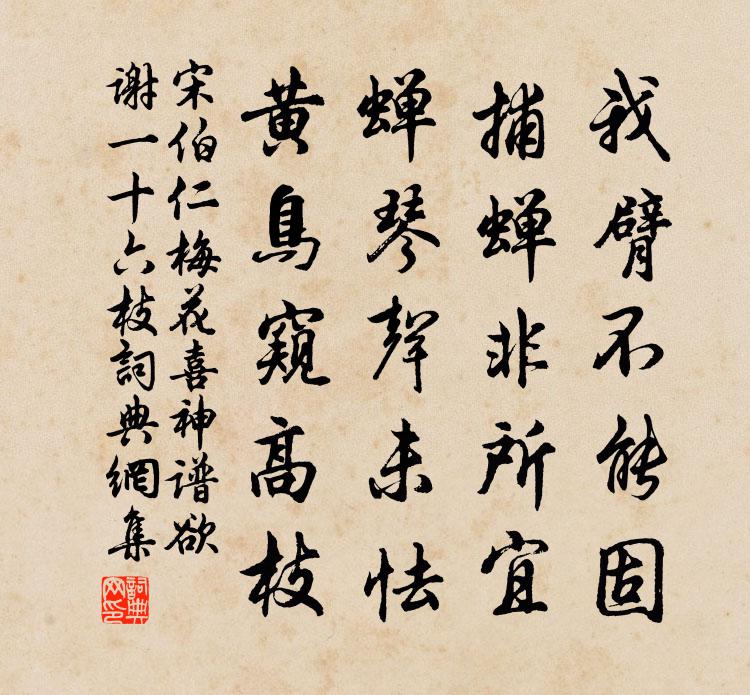 我臂不能固
捕蝉非所宜
蝉琴聲未怯
黄鳥窺高枝
宋伯仁梅花喜神谱欲
谢一十六枝詞典網集
詞典
网印